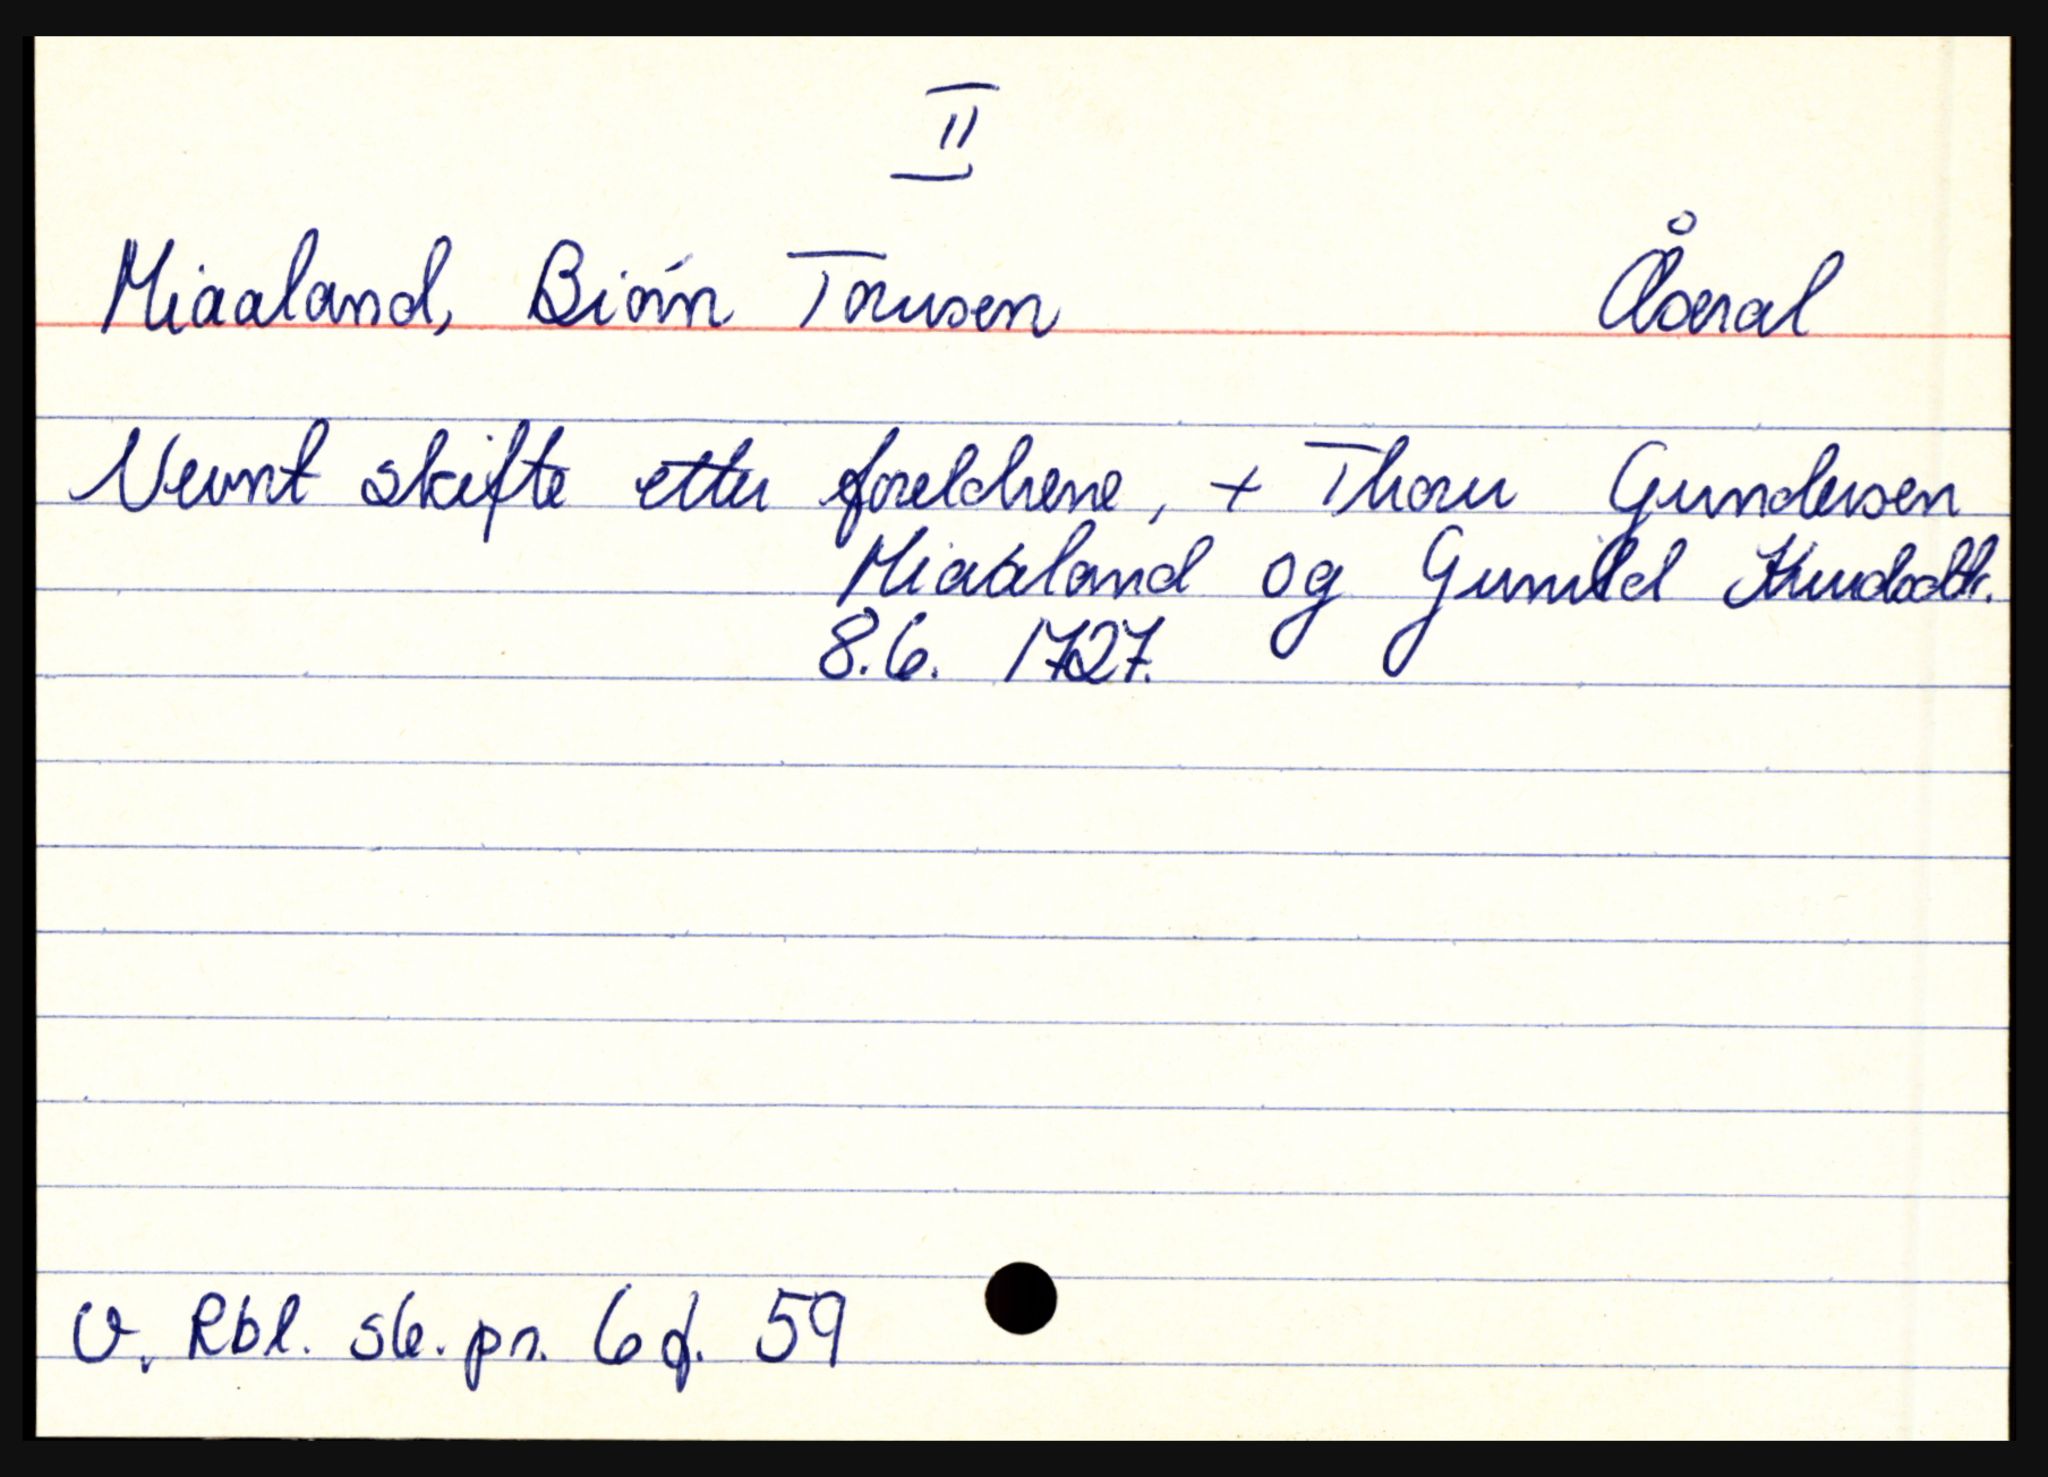 II
Miaaland, Biórn Torusen Åseral
Nevnt skifte etter foreldrene, + Thoru Gundersen
Miaaland og Gunild Knudsdtr.
8.6. 1727.
V. Rbl. sk. pr. 6 f. 59